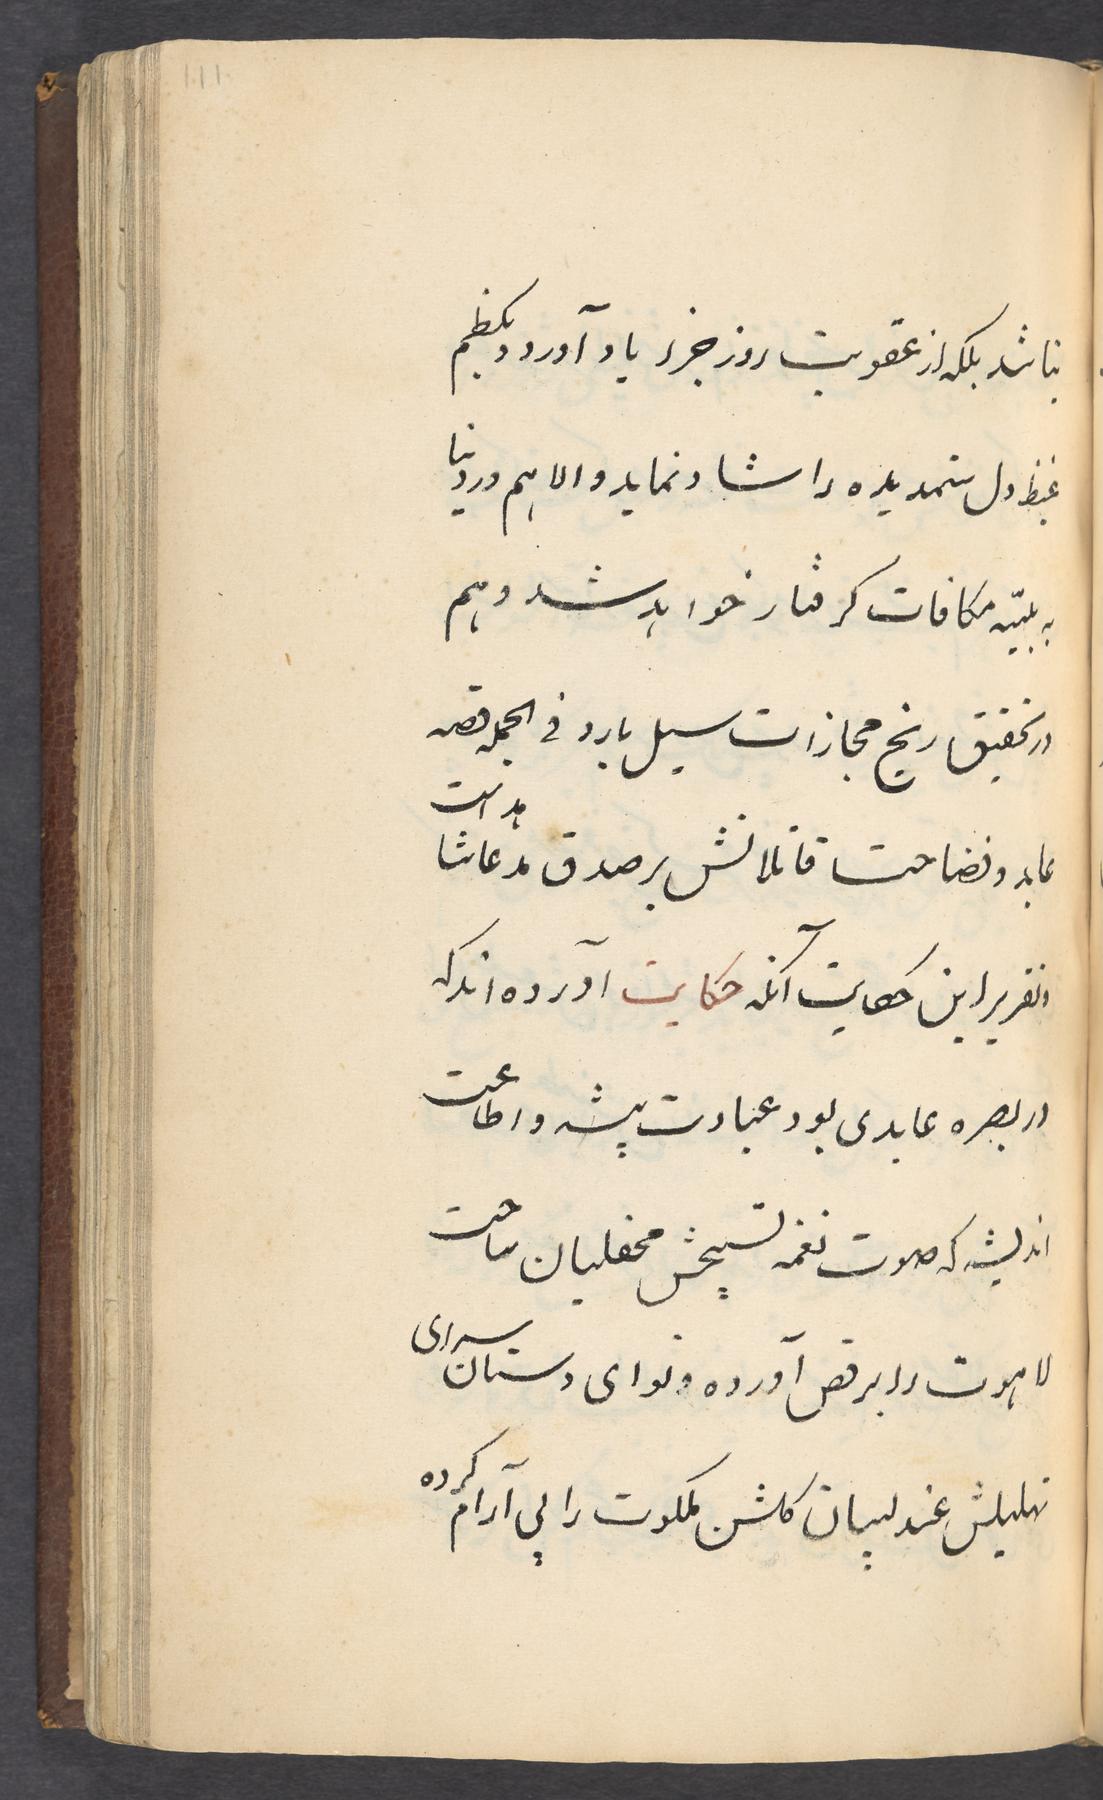 ۱۱۱
نباشد بلکه از عقوبت روز جزا یاد آورد و بکظم
غیظ دل ستمدیده را شاد نماید و الا هم در دنیا
به بلیّه مکافات کرفتار خواهد شد و هم
در تحقیق رنج مجازات سیل بارد فی الجمله قصه
عابد و فضاحت قاتلانش بر صدق مدعا شاهد است
و تقریر این حکایت آنکه حکایت آورده اند که
در بصره عابدی بود عبادت پیشه و اطاعت
اندیشه که صوت نغمه تسبیحش محفلیان ساحت
لاهوت را برقص آورده و نوای دستان سرای
تهلیلش عندلیبان کلشن ملکوت را بی آرام کرده